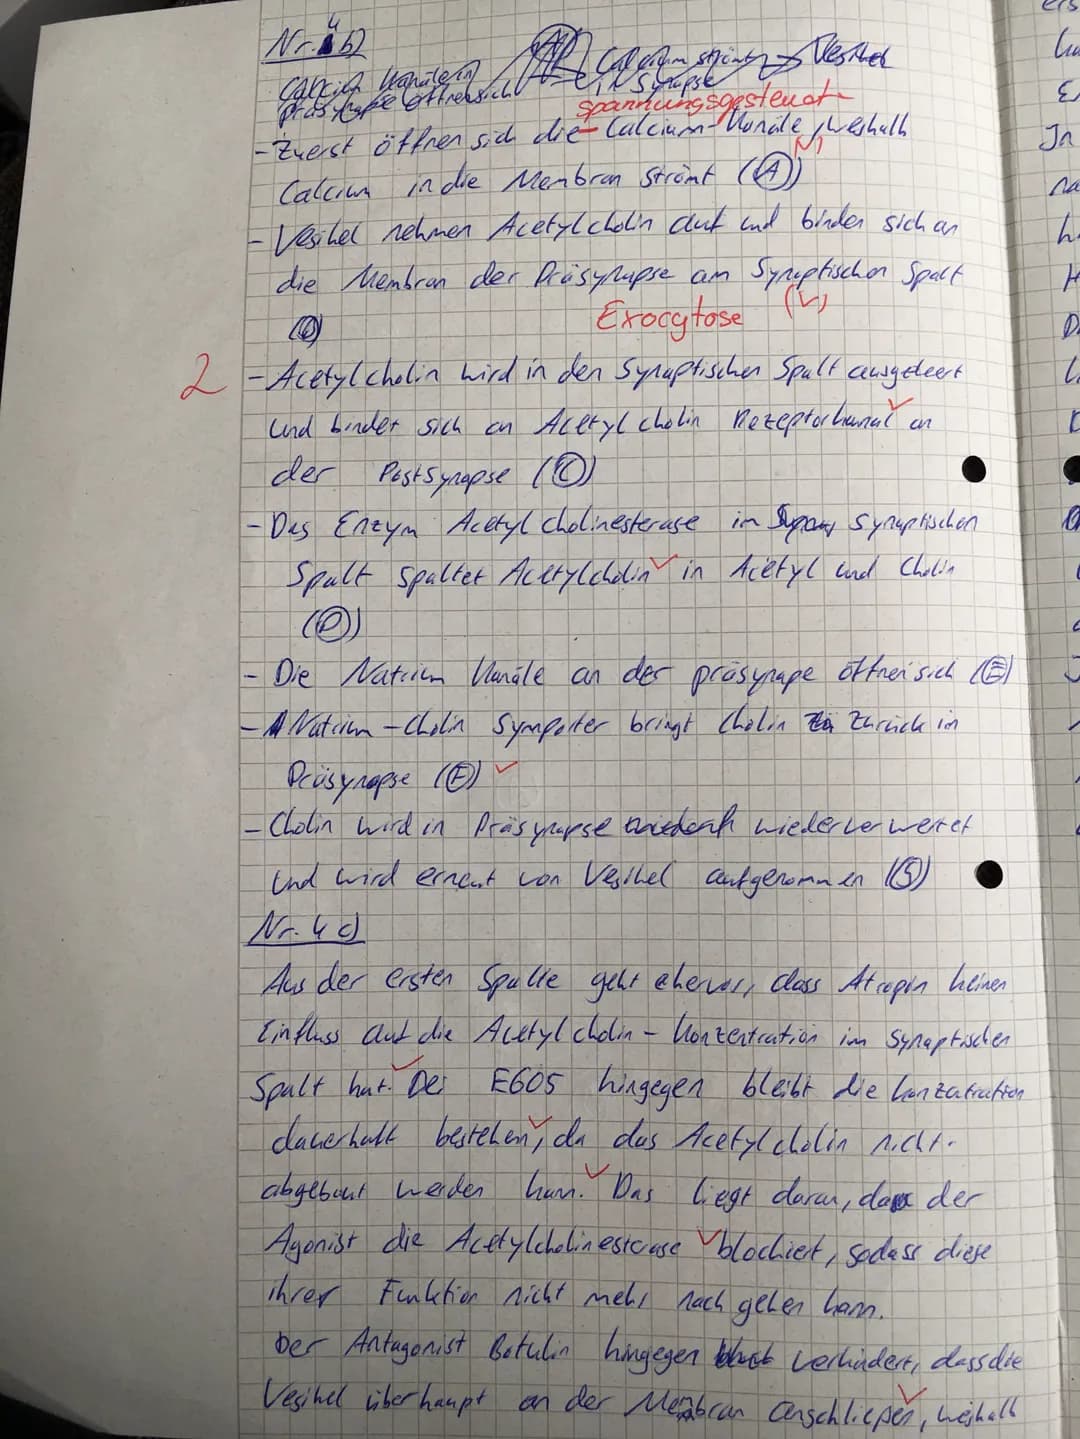 Nr. 4 b)
Calcium Kanäle in
präsynapse öffnen sich
Calcium strömt
in Synapse
Vesikel
spannungsgesteuert
- Zuerst öffnen sich die Calcium-Kanäle, weshalb
Calcium in die Membran strömt (A)
- Vesikel nehmen Acetylcholin auf und binden sich an
die Membran der Präsynapse am Synaptischen Spalt
Exocytose
2
- Acetylcholin wird in den Synaptischen Spalt ausgeleert
und bindet sich an Acetylcholin Rezeptorkanal an
der Postsynapse (C)
- Das Enzym Acetylcholinesterase im synaptischen
Spalt spaltet Acetylcholin in Acetyl und Cholin
(D)
- Die Natrium Kanäle an der präsynape öffnen sich (E)
- Natrium-Cholin Symporter bringt Cholin zurück in
Präsynapse (F)
- Cholin wird in Präsynapse wiederverwertet
und wird erneut von Vesikel aufgenommen (G)
Nr. 4 c)
Aus der ersten Spalte geht hervor, dass Atropin keinen
Einfluss auf die Acetylcholin-Konzentration im Synaptischen
Spalt hat. Bei E605 hingegen bleibt die Konzentration
dauerhaft bestehen, da das Acetylcholin nicht
abgebaut werden kann. Das liegt daran, dass der
Agonist die Acetylcholinesterase blockiert, sodass diese
ihrer Funktion nicht mehr nach gehen kann.
Der Antagonist Botulin hingegen verhindert, dass die
Vesikel überhaupt an der Membran anschließen, weshalb